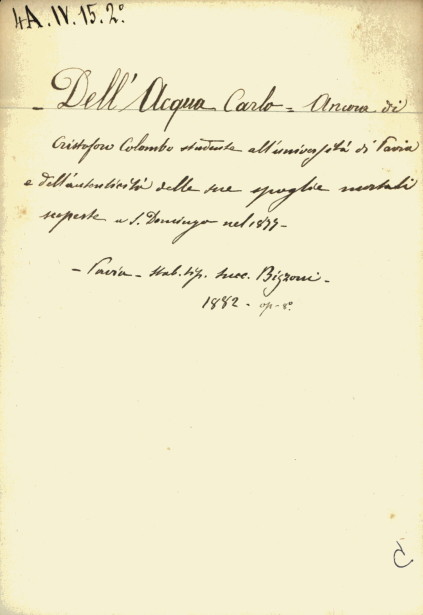 4A.IV.15.2°
- Dell'Acqua Carlo = Ancora di
Cristoforo Colombo studente all'università di Pavia
e dell'autenticità delle sue spoglie mortali
scoperte a S. Domingo nel 1877 -
- Pavia - stab. tip. succ. Bizzoni -
1882 - op - 8°